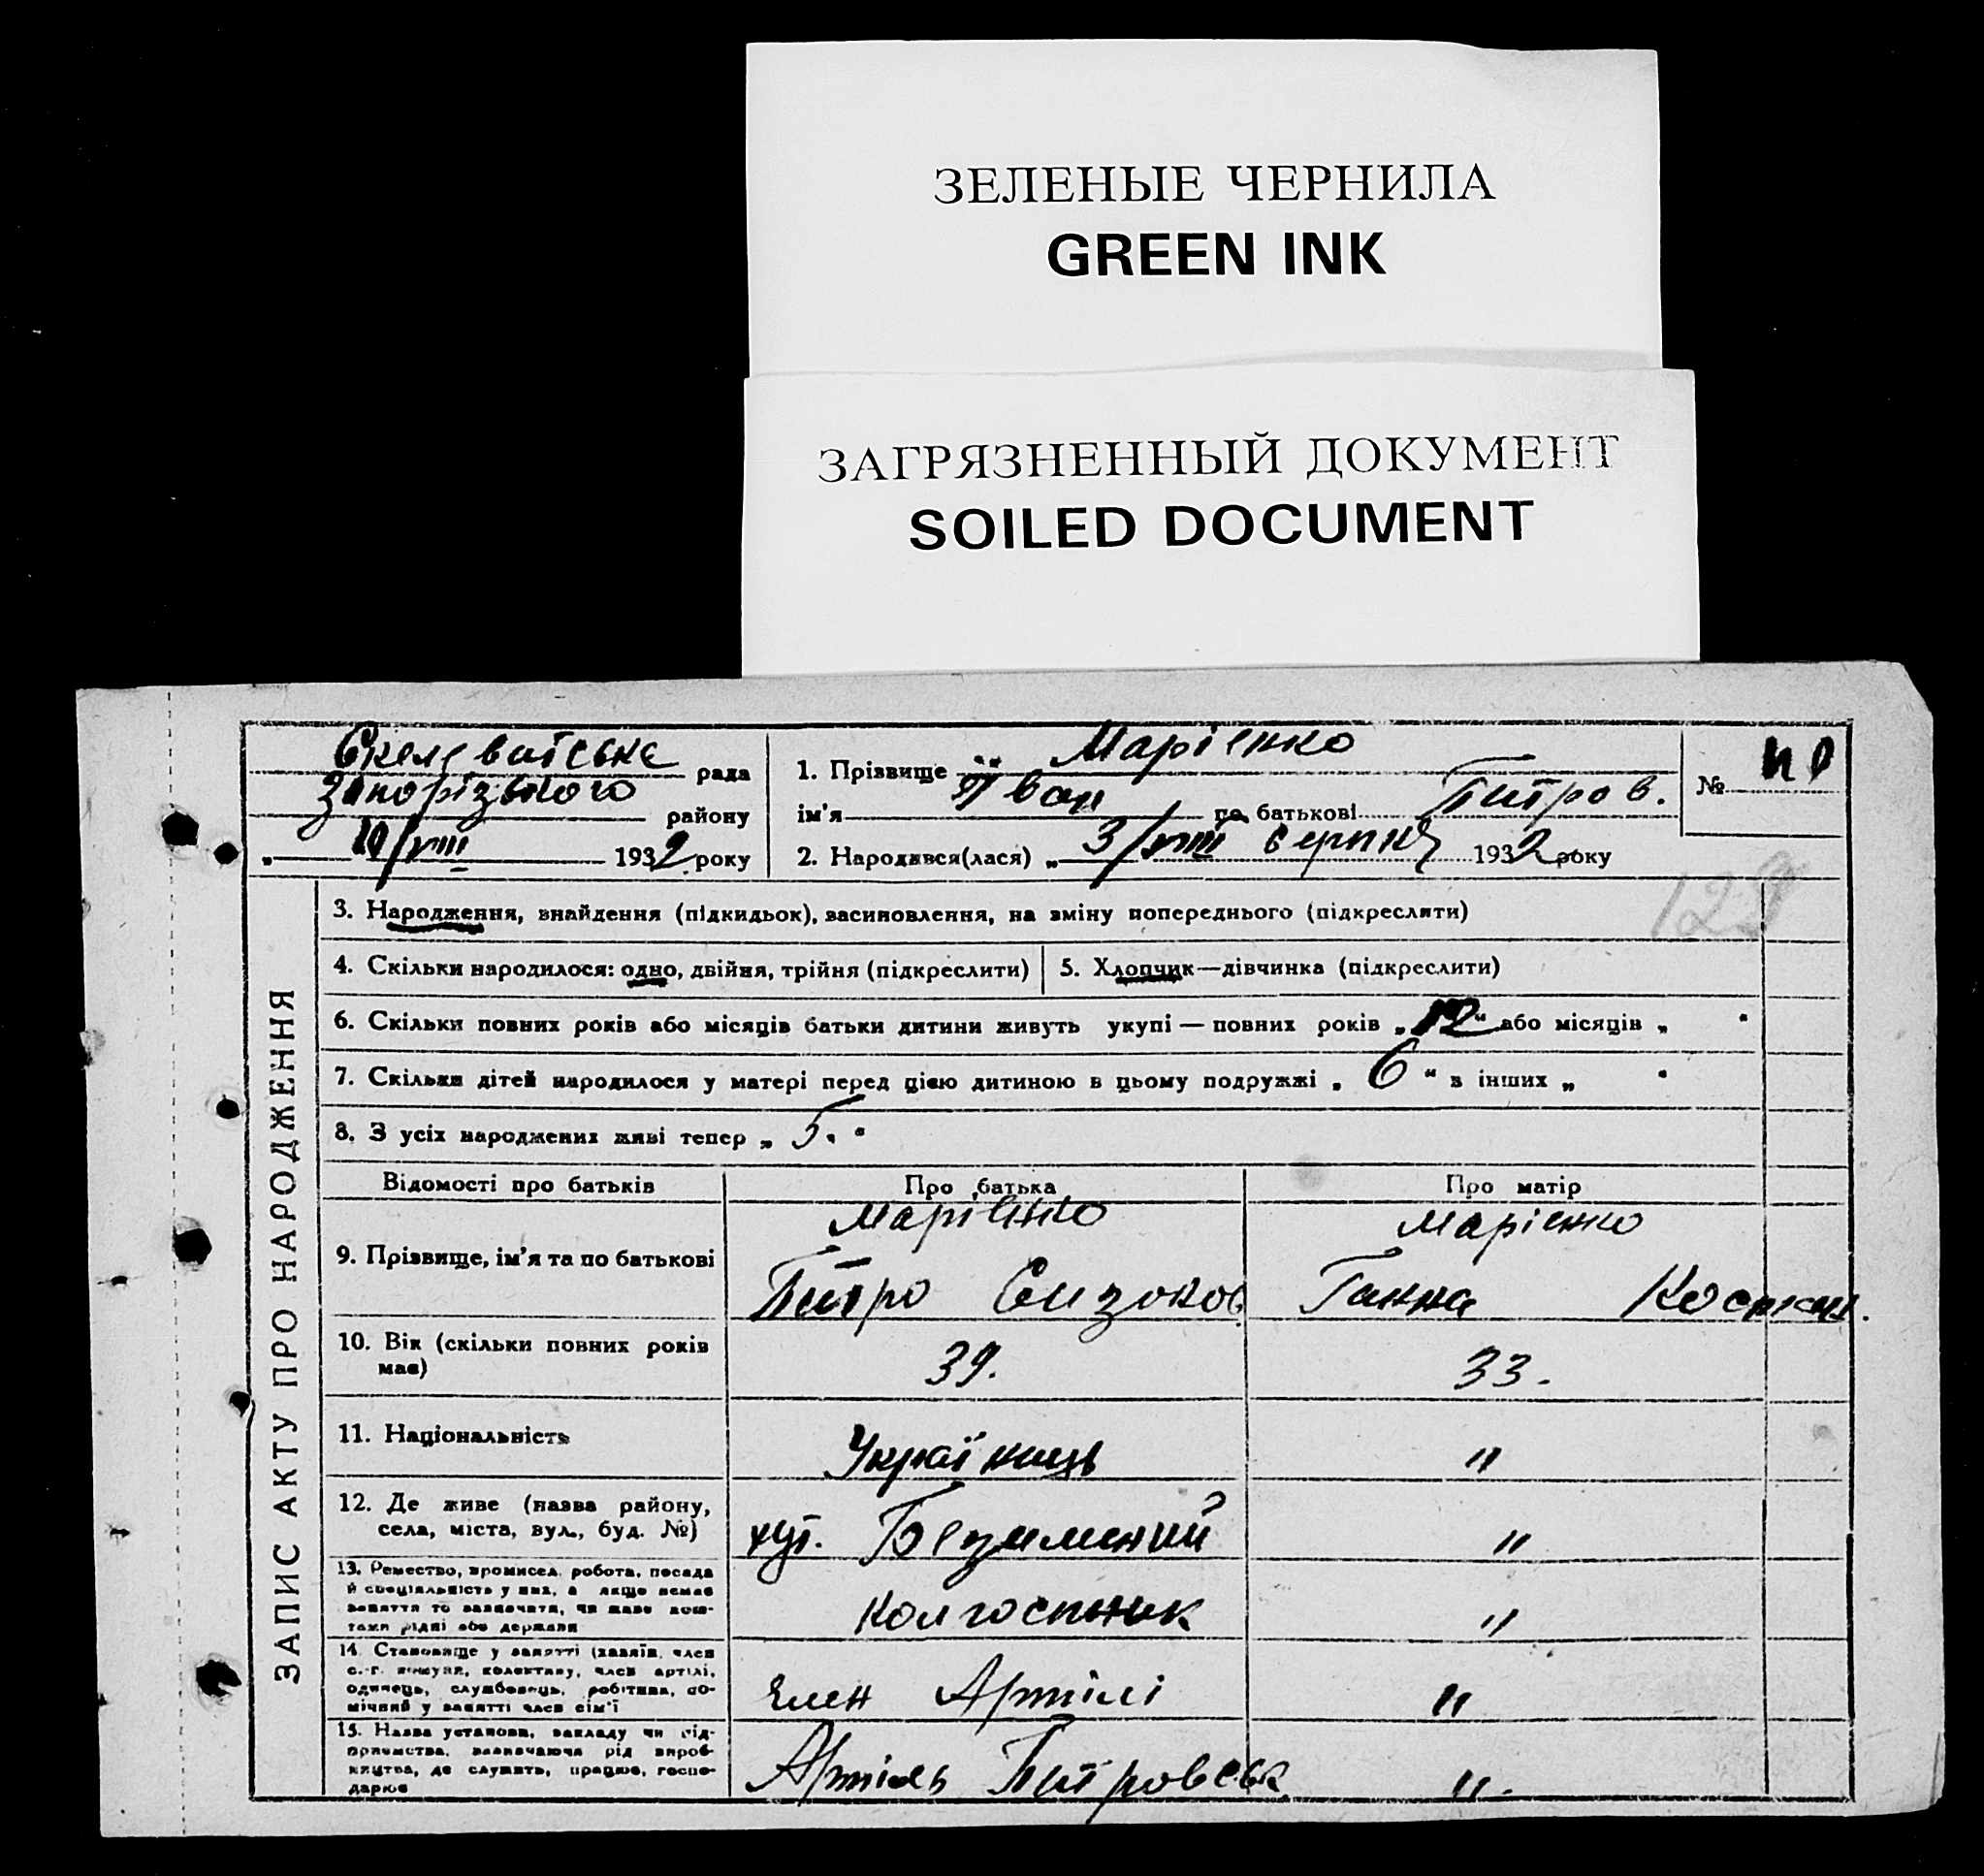 ЗЕЛЕНЫЕ ЧЕРНИЛА
GREEN INK
ЗАГРЯЗНЕННЫЙ ДОКУМЕНТ
SOILED DOCUMENT
рада
Запорізького району
„ 10/VIII 1932 року
1. Прізвище Марієнко
ім'я Іван по батькові Петров.
2. Народився(лася) „ 3/VIII серпня 1932 року
№
ЗАПИС АКТУ ПРО НАРОДЖЕННЯ
3. Народження, знайдення (підкидьок), засиновлення, на зміну попереднього (підкреслити)
4. Скільки народилося: одно, двійня, трійня (підкреслити)
5. Хлопчик—дівчинка (підкреслити)
6. Скільки повних років або місяців батьки дитини живуть укупі — повних років „12“ або місяців „ “
7. Скільки дітей народилося у матері перед цією дитиною в цьому подружжі „ 6 “ в інших „ “
8. З усіх народжених живі тепер „ 5. “
Відомості про батьків Про батька Про матір
9. Прізвище, ім'я та по батькові
Марієнко Марієнко
Петро Ганна
10. Вік (скільки повних років має)
39. 33.
11. Національність
Українець "
12. Де живе (назва району,
села, міста, вул., буд. №)
хут. Безименний "
13. Ремество, промисел, робота, посада
й спеціальність у них, а якщо немає
заняття то зазначити, чи живе кош-
тами рідні або держави
Колгоспник "
14. Становище у занятті (хазяїн, член
с.-г. комуни, колективу, член артілі,
одинець, службовець, робітник, по-
мічний у занятті член сім'ї
Член Артілі "
15. Назва установи, закладу чи під-
приємства, зазначаючи рід вироб-
ництва, де служить, працює, госпо-
дарює
Артіль Петровськ ".